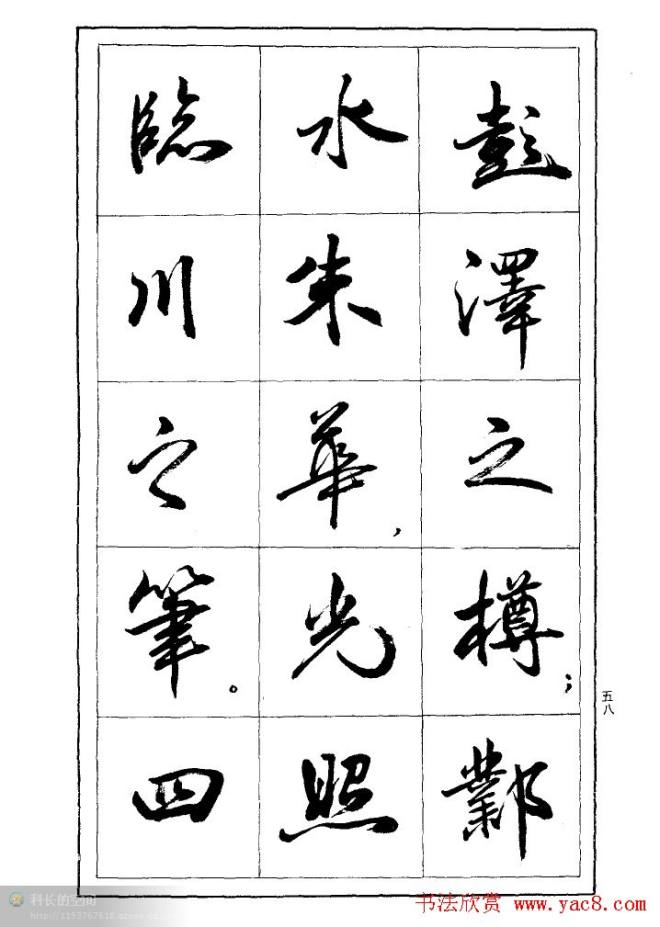 彭澤之樽；鄴
水朱華，光照
臨川之筆。四
五八
科长的空间
书法欣赏 www.yac8.com